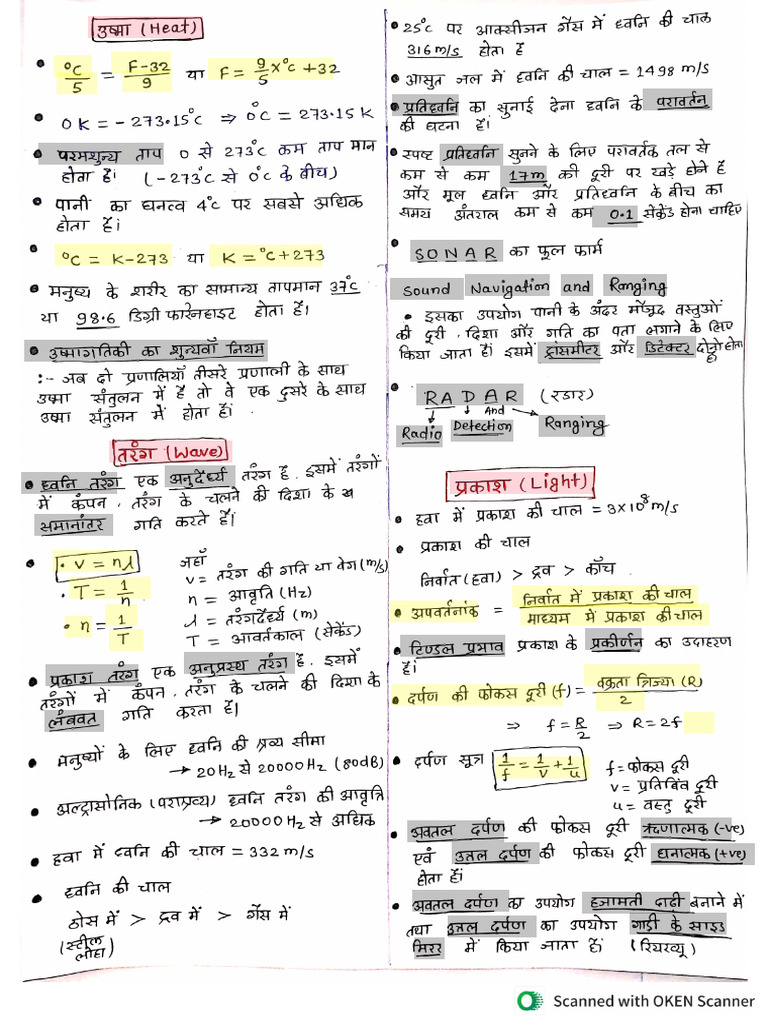 उष्मा (Heat)
°C/5 = F-32/9 या F = 9/5 x°C +32
0K = -273.15°C ⇒ 0°C = 273.15 K
परमशुन्य ताप 0 से 273°C कम ताप मान
होता है। (-273°C से 0°C के बीच)
पानी का घनत्व 4°C पर सबसे अधिक
होता है।
°C = K-273 या K = °C+273
मनुष्य के शरीर का सामान्य तापमान 37°C
या 98.6 डिग्री फारेनहाइट होता है।
उष्मागतिकी का शुन्यवाँ नियम
:- जब दो प्रणालियाँ तीसरे प्रणाली के साथ
उष्मा संतुलन में है तो वे एक दुसरे के साथ
उष्मा संतुलन में होता है।
तरंग (Wave)
ध्वनि तरंग एक अनुदैर्ध्य तरंग है. इसमें तरंगों
में कंपन, तरंग के चलने की दिशा के
समानांतर गति करते है।
v = nλ
T = 1/n
n = 1/T
जहाँ
v = तरंग की गति या वेग (m/s)
n = आवृति (Hz)
λ = तरंगदैर्ध्य (m)
T = आवर्तकाल (सेकेंड)
प्रकाश तरंग एक अनुप्रस्थ तरंग है. इसमें
तरंगों में कंपन, तरंग के चलने की दिशा के
लंबवत गति करता है।
मनुष्यों के लिए ध्वनि की श्रव्य सीमा
→ 20Hz से 20000Hz (80dB)
अल्ट्रासोनिक (पराश्रव्य) ध्वनि तरंग की आवृत्ति
→ 20000Hz से अधिक
हवा में ध्वनि की चाल = 332 m/s
ध्वनि की चाल
ठोस में > द्रव में > गैस में
(स्टील
लोहा)
25°C पर आक्सीजन गैस में ध्वनि की चाल
316 m/s होता है
आसुत जल में ध्वनि की चाल = 1498 m/s
प्रतिध्वनि का सुनाई देना ध्वनि के परावर्तन
की घटना है।
स्पष्ट प्रतिध्वनि सुनने के लिए परावर्तक तल से
कम से कम 17m की दूरी पर खड़े होने है
और मूल ध्वनि और प्रतिध्वनि के बीच का
समय अंतराल कम से कम 0.1 सेकेंड होना चाहिए
SONAR का फूल फार्म
Sound Navigation and Ranging
इसका उपयोग पानी के अंदर मौजूद वस्तुओं
की दूरी, दिशा और गति का पता लगाने के लिए
किया जाता है। इसमें ट्रांसमीटर और डिटेक्टर दोनो होता
है
RADAR (रडार)
Radio Detection And Ranging
प्रकाश (Light)
हवा में प्रकाश की चाल = 3×10⁸ m/s
प्रकाश की चाल
निर्वात (हवा) > द्रव > काँच
अपवर्तनांक = निर्वात में प्रकाश की चाल
माध्यम में प्रकाश की चाल
टिण्डल प्रभाव प्रकाश के प्रकीर्णन का उदाहरण
है।
दर्पण की फोकस दूरी (f) = वक्रता त्रिज्या (R)/2
⇒ f = R/2 ⇒ R = 2f
दर्पण सूत्र 1/f = 1/v + 1/u
f = फोकस दूरी
v = प्रतिबिंब दूरी
u = वस्तु दूरी
अवतल दर्पण की फोकस दूरी ऋणात्मक (-ve)
एवं उत्तल दर्पण की फोकस दूरी धनात्मक (+ve)
होता है।
अवतल दर्पण का उपयोग हजामती दाढ़ी बनाने में
तथा उत्तल दर्पण का उपयोग गाड़ी के साइड
मिरर में किया जाता है। (रियरव्यू)
Scanned with OKEN Scanner